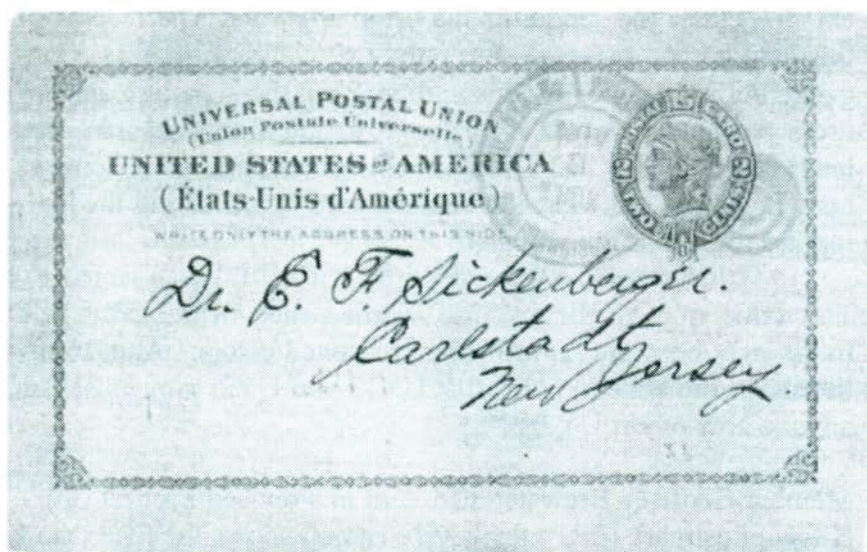 UNIVERSAL POSTAL UNION
(Union Postale Universelle)
UNITED STATES OF AMERICA
(États-Unis d'Amérique)
WRITE ONLY THE ADDRESS ON THIS SIDE
POSTAL CARD
TWO CENTS
Dr. E. F. Sickenberger.
Carlstadt
New Jersey